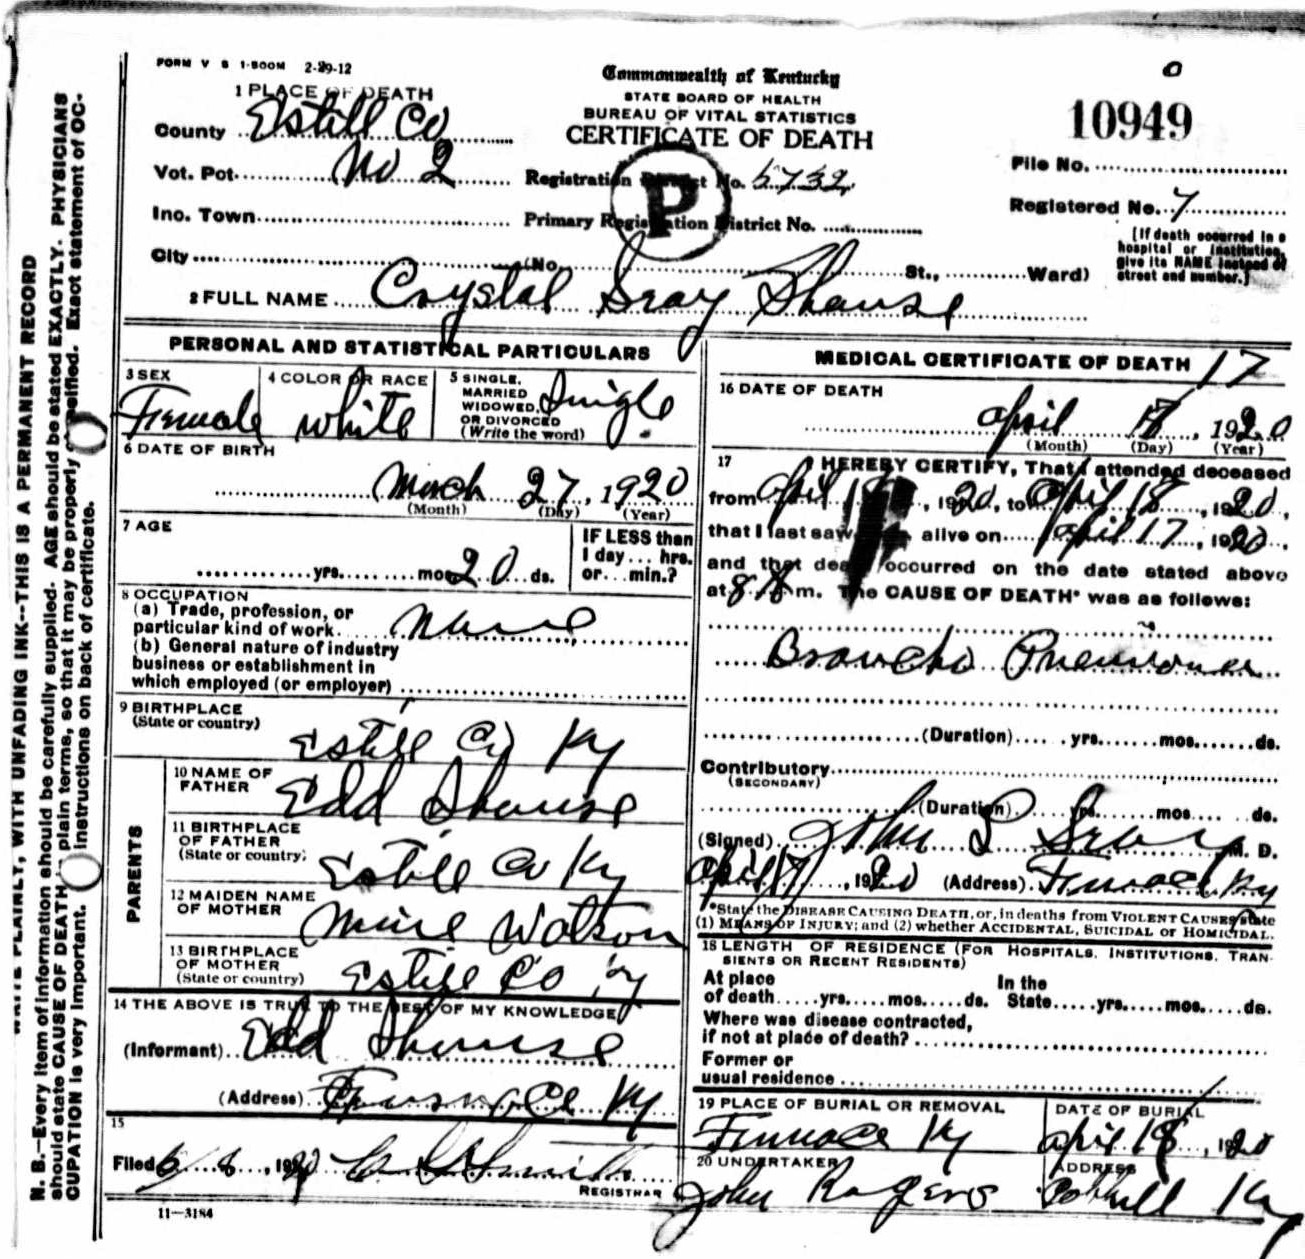 FORM V S 1-500M 2-29-12
Commonwealth of Kentucky
STATE BOARD OF HEALTH
BUREAU OF VITAL STATISTICS
CERTIFICATE OF DEATH
0
10949
1 PLACE OF DEATH
County Estill Co
Vot. Pct. No 2
Registration District No. 5732
File No.
Inc. Town
Primary Registration District No.
Registered No. 7
P
City (No. St., Ward)
[If death occurred in a hospital or institution, give its NAME instead of street and number.]
2 FULL NAME Crystal Gray Shouse
PERSONAL AND STATISTICAL PARTICULARS
3 SEX
Female
4 COLOR OR RACE
white
5 SINGLE, MARRIED WIDOWED, OR DIVORCED (Write the word)
Single
6 DATE OF BIRTH
March 27, 1920
(Month) (Day) (Year)
7 AGE
yrs. mos. 20 ds.
IF LESS than 1 day... hrs. or... min.?
8 OCCUPATION
(a) Trade, profession, or
particular kind of work
(b) General nature of industry
business or establishment in
which employed (or employer)
9 BIRTHPLACE
(State or country)
Estill Co Ky
PARENTS
10 NAME OF FATHER
Edd Shouse
11 BIRTHPLACE OF FATHER (State or country)
Estill Co Ky
12 MAIDEN NAME OF MOTHER
Watson
13 BIRTHPLACE OF MOTHER (State or country)
Estill Co Ky
14 THE ABOVE IS TRUE TO THE BEST OF MY KNOWLEDGE
(Informant) Edd Shouse
(Address) Furnace Ky
15
Filed 6/8, 1920
REGISTRAR
11-3184
MEDICAL CERTIFICATE OF DEATH
17
16 DATE OF DEATH
April 18, 1920
(Month) (Day) (Year)
17 I HEREBY CERTIFY, That I attended deceased
from April , 1920, to April 18, 1920,
that I last saw alive on April 17, 1920,
and that death occurred on the date stated above
at 8 m. The CAUSE OF DEATH* was as follows:
Broncho Pneumonia
(Duration) yrs. mos. ds.
Contributory
(SECONDARY)
(Duration) yrs. mos. ds.
(Signed) John L Gray M. D.
April 17, 1920 (Address) Furnace Ky
*State the DISEASE CAUSING DEATH, or, in deaths from VIOLENT CAUSES state
(1) MEANS OF INJURY; and (2) whether ACCIDENTAL, SUICIDAL or HOMICIDAL.
18 LENGTH OF RESIDENCE (FOR HOSPITALS, INSTITUTIONS, TRAN-
SIENTS OR RECENT RESIDENTS)
At place In the
of death yrs. mos. ds. State yrs. mos. ds.
Where was disease contracted,
if not at place of death?
Former or
usual residence
19 PLACE OF BURIAL OR REMOVAL
Furnace Ky
DATE OF BURIAL
April 18, 1920
20 UNDERTAKER
John Rogers
ADDRESS
Ky
WRITE PLAINLY, WITH UNFADING INK--THIS IS A PERMANENT RECORD
N. B.--Every item of information should be carefully supplied. AGE should be stated EXACTLY. PHYSICIANS
should state CAUSE OF DEATH plain terms, so that it may be properly classified. Exact statement of OC-
CUPATION is very important. instructions on back of certificate.